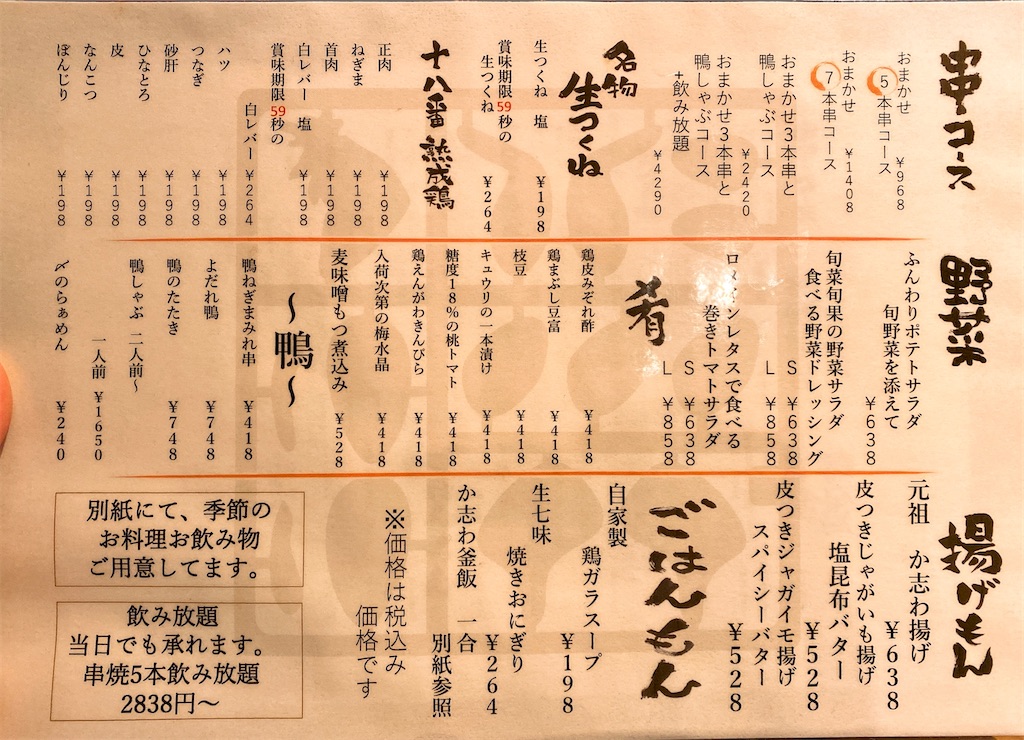 串コース
おまかせ
5本串コース
¥968
おまかせ
7本串コース
¥1408
おまかせ3本串と
鴨しゃぶコース
¥2420
おまかせ3本串と
鴨しゃぶコース
+飲み放題
¥4290
名物
生つくね
生つくね 塩
¥198
賞味期限59秒の
生つくね
¥264
十八番 熟成鶏
正肉
¥198
ねぎま
¥198
首肉
¥198
白レバー 塩
¥198
賞味期限59秒の
白レバー
¥264
ハツ
¥198
つなぎ
¥198
砂肝
¥198
ひなとろ
¥198
皮
¥198
なんこつ
¥198
ぼんじり
¥198
野菜
ふんわりポテトサラダ
旬野菜を添えて
¥638
旬菜旬果の野菜サラダ
食べる野菜ドレッシング
S ¥638
L ¥858
ロメインレタスで食べる
巻きトマトサラダ
S ¥638
L ¥858
肴
鶏皮みぞれ酢
¥418
鶏まぶし豆富
¥418
枝豆
¥418
キュウリの一本漬け
¥418
糖度18%の桃トマト
¥418
鶏えんがわきんぴら
¥418
入荷次第の梅水晶
¥418
麦味噌もつ煮込み
¥528
〜鴨〜
鴨ねぎまみれ串
¥418
よだれ鴨
¥748
鴨のたたき
¥748
鴨しゃぶ 二人前〜
一人前 ¥1650
〆のらぁめん
¥240
揚げもん
元祖 か志わ揚げ
¥638
皮つきじゃがいも揚げ
塩昆布バター
¥528
皮つきジャガイモ揚げ
スパイシーバター
¥528
ごはんもん
自家製
鶏ガラスープ
¥198
生七味
焼きおにぎり
¥264
か志わ釜飯 一合
別紙参照
※価格は税込み
価格です
別紙にて、季節の
お料理お飲み物
ご用意してます。
飲み放題
当日でも承れます。
串焼5本飲み放題
2838円〜